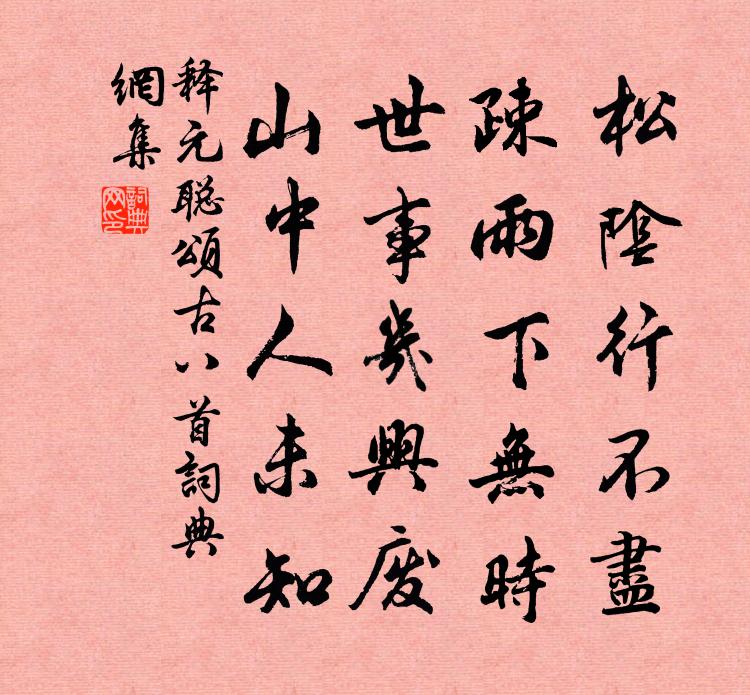 松陰行不盡
疎雨下無時
世事幾興廢
山中人未知
释元聪頌古八首詞典
網集
詞典
网印